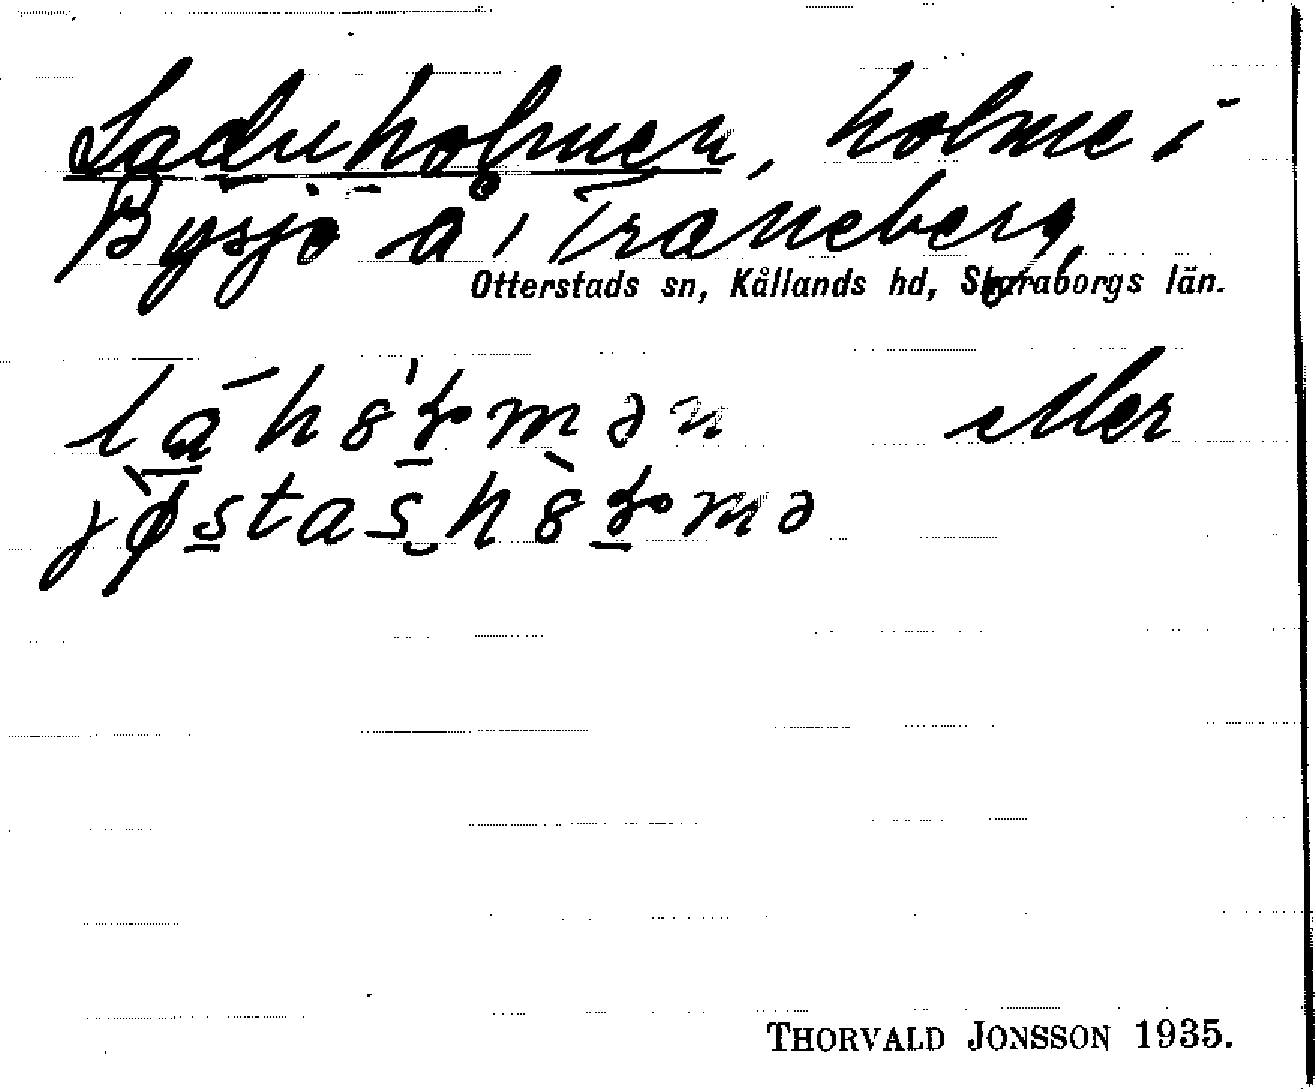 Laduholmen, holme i
Bysjö å, Traneberg,
Otterstads sn, Kållands hd, Skaraborgs län.
eller
THORVALD JONSSON 1935.